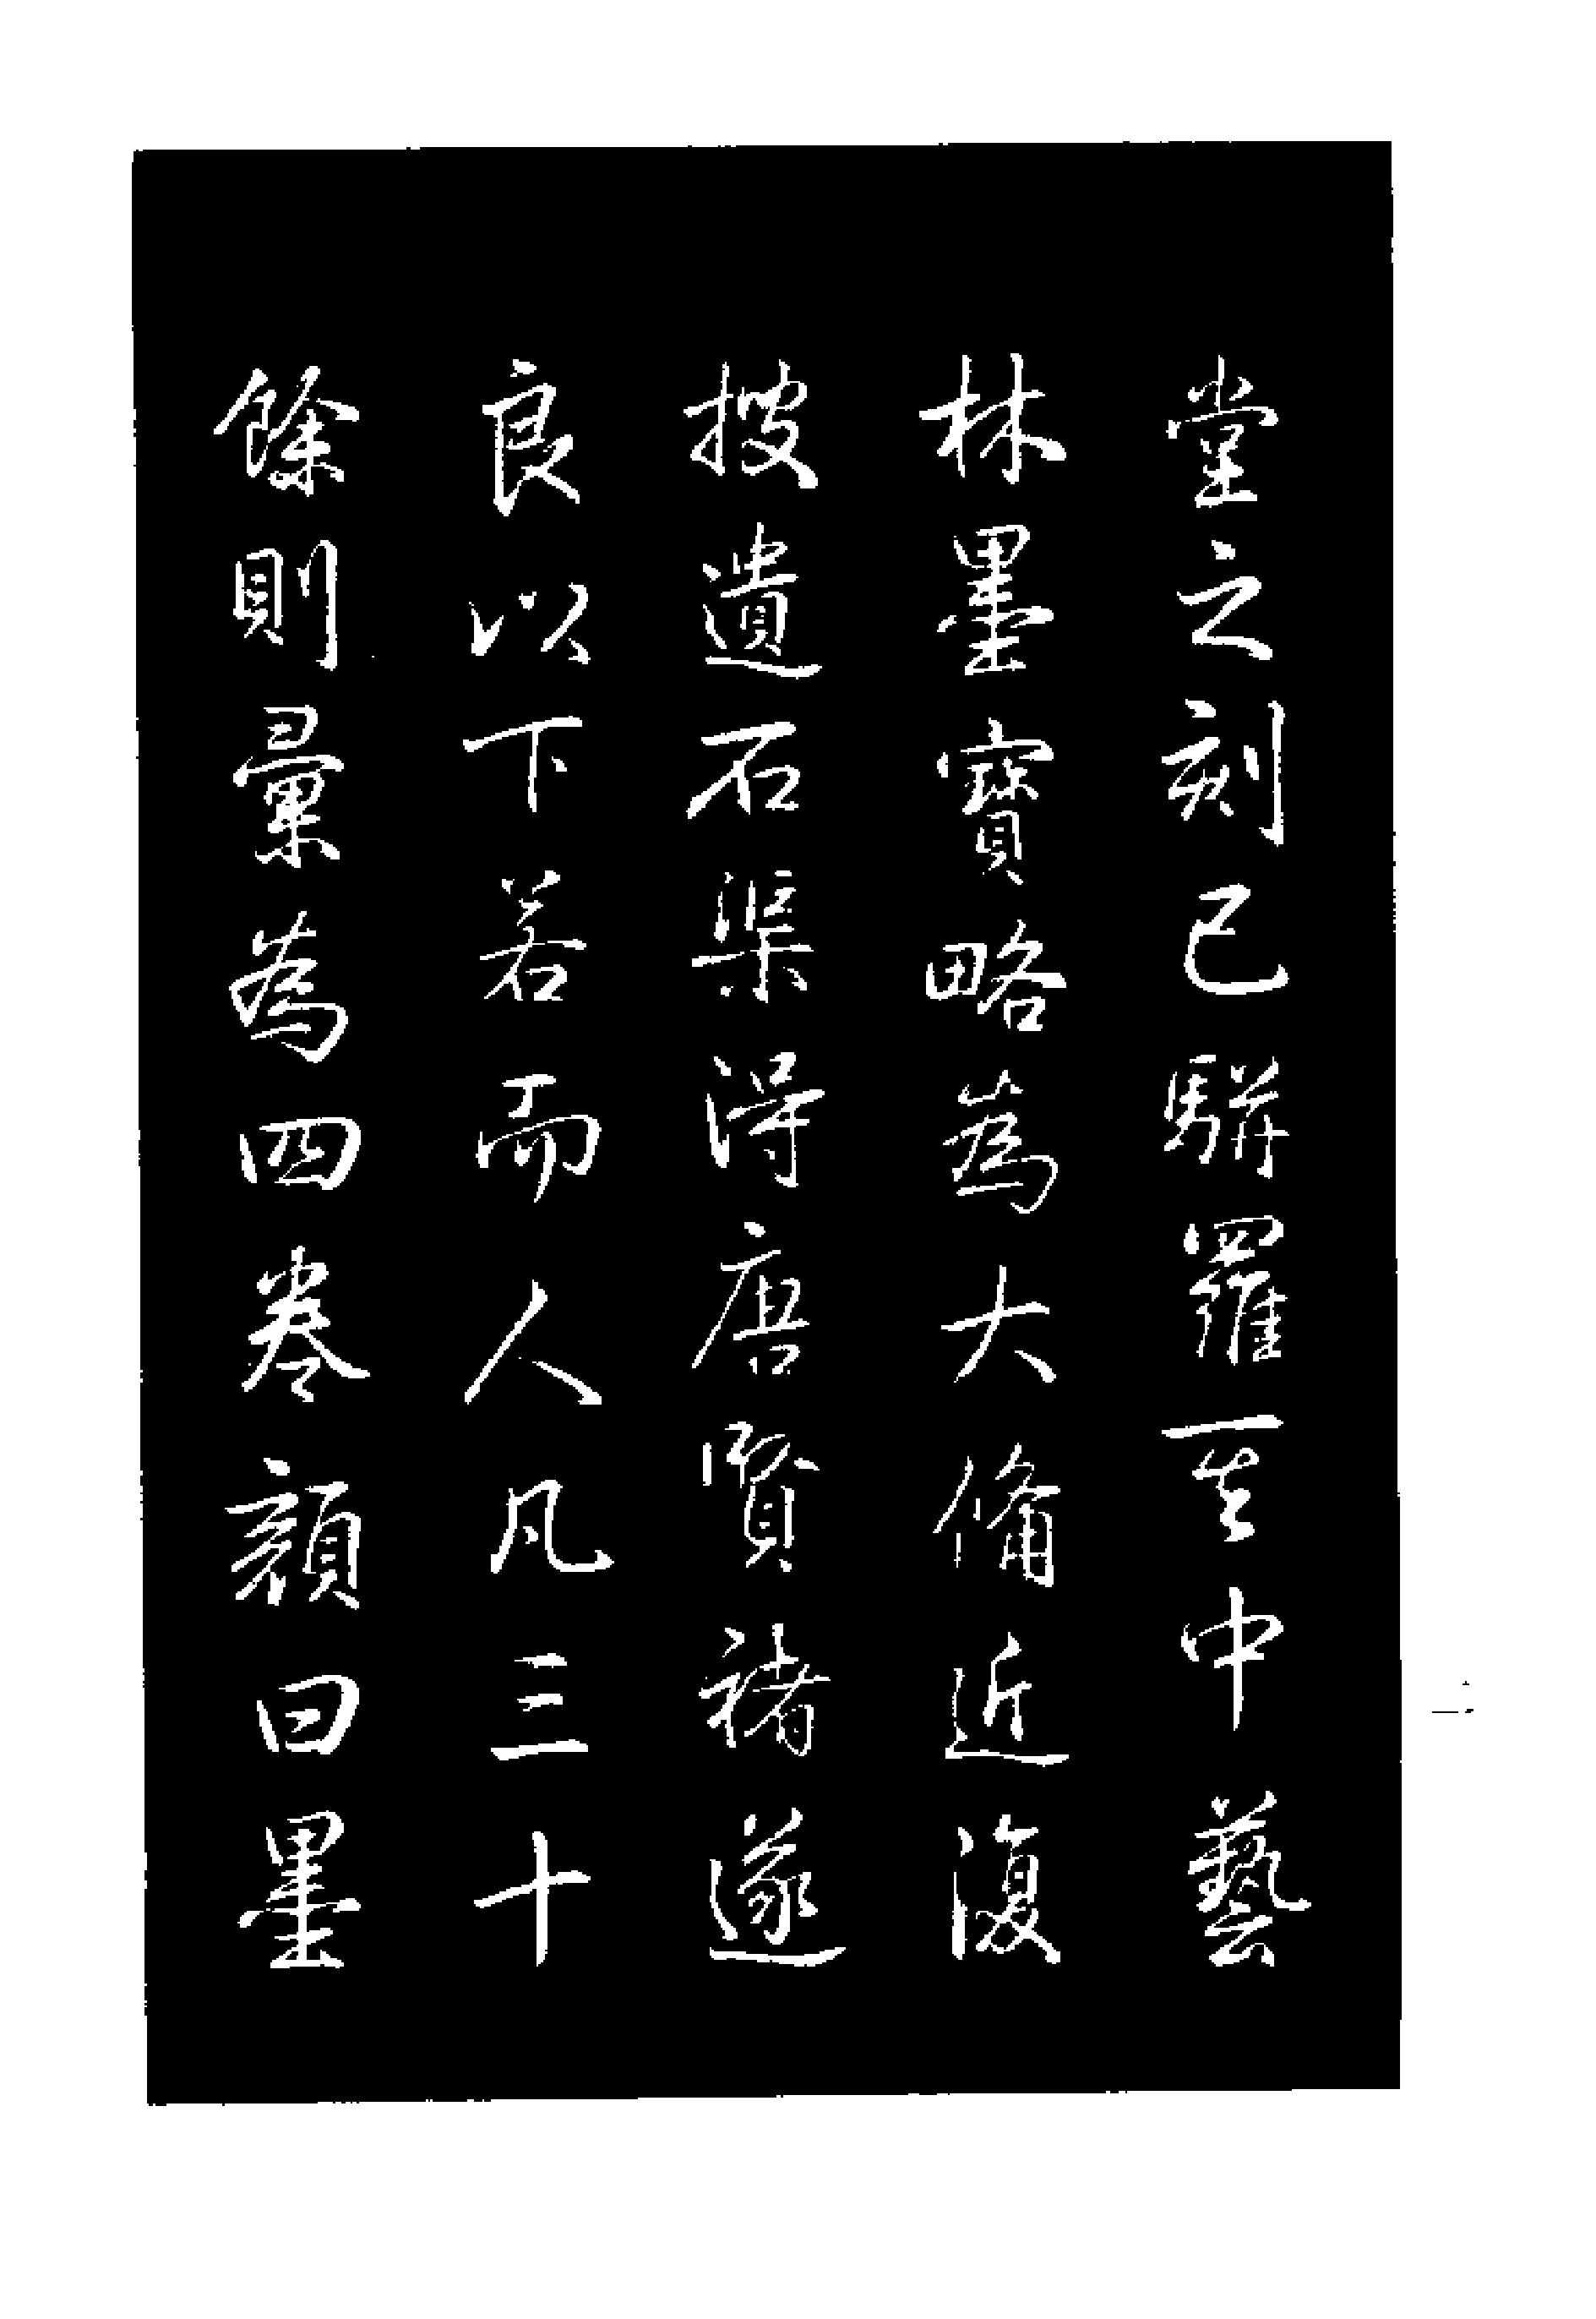 堂之刻已駢羅中藝
林墨寶略為大備近復
搜遺石渠得唐賢褚遂
良以下若而人凡三十
餘則彙為四卷顏曰墨